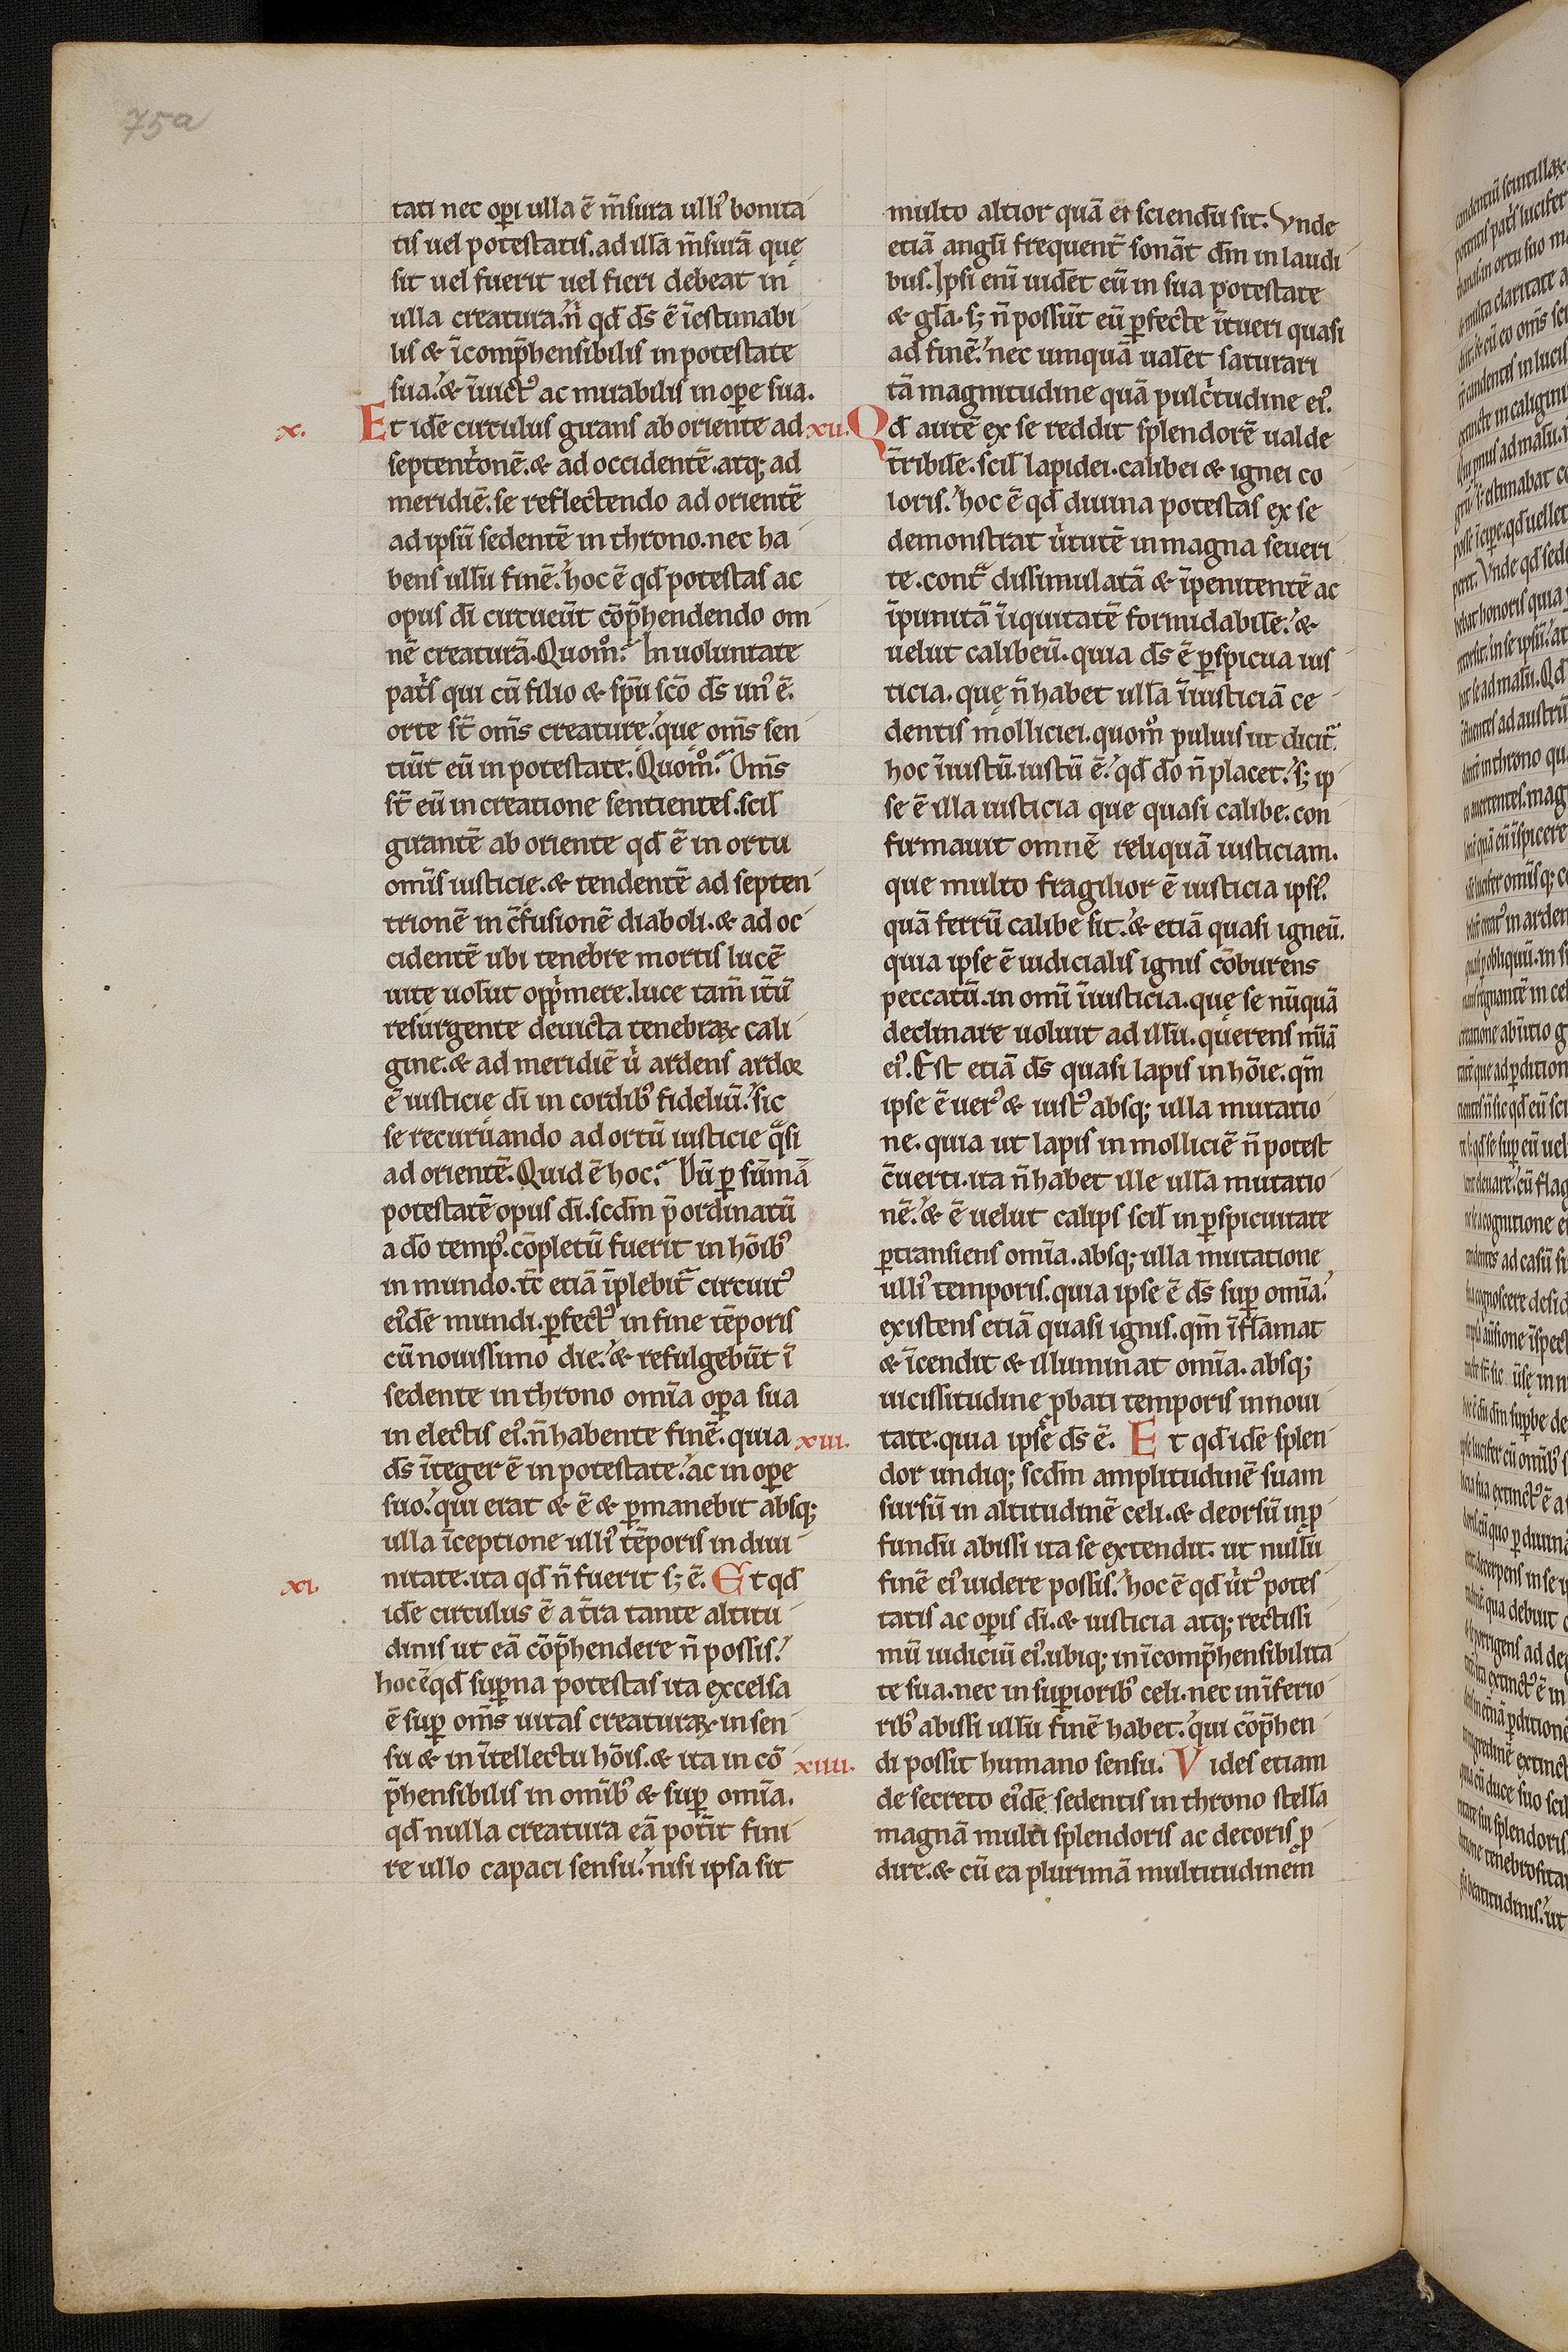 75a
tati nec opı ulla ē m̄sura ulliꝰ bonita
tis uel potestatis. ad illā m̄surā quę
sit uel fuerit uel fieri debeat in
ulla creatura. n̄ qđ ds̄ ē īestimabi
lis & īcomp̄hensibilis in potestate
sua. & īuictꝰ ac mirabilis in ope sua.
x. Et idē circulus girans ab oriente ad
septentͥonē. & ad occidentē. atq; ad
meridiē. se reflectendo ad orientē
ad ipsū sedentē in throno. nec ha
bens ullū finē. hoc ē qđ potestas ac
opus dī circueūt cōp̄hendendo om
nē creaturā. Quom̊. In uoluntate
patͥs qui cū filio & sp̄u sc̄o ds̄ unꝰ ē.
orte st̄ om̄s creature. quę om̄s sen
tiūt eū in potestate. Quom̊. Om̄s
st̄ eū in creatione sentientes. scił
girantē ab oriente qđ ē in ortu
omīs iusticie. & tendentē ad septen
trionē in c̄fusionē diaboli. & ad oc
cidentē ubi tenebre mortis lucē
uitę uolūt oppͥmere. luce tam̄ itū
resurgente deuicta tenebraꝝ cali
gine. & ad meridiē uͥ ardens ardoꝛ
ē iusticie dī in cordibꝰ fideliū. sic
se recuruando ad ortū iusticie qͣsi
ad orientē. Quid ē hoc. Dū ꝑ sūmā
potestatē opus dī. scdm̄ p̄ordinatū
a dō tempꝰ. cōpletū fuerit in hōibꝰ
in mundo. tc̄ etiā īplebit̄ circuitꝰ
eiꝰdē mundi. ꝑfectꝰ in fine tēporis
cū nouissimo die. & refulgebūt ī
sedente in throno omīa oꝑa sua
in electis eiꝰ. n̄ habente finē. quia
ds̄ īteger ē in potestate. ac in oꝑe
suo. qui erat & ē & ꝑmanebit absq;
ulla īceptione ulliꝰ tēporis in diui
nitate. ita qđ n̄ fuerit s; ē. xi. Et qđ
idē circulus ē a tͥra tante altitu
dinis ut eā cōp̄hendere n̄ possis.
hoc ē qđ suꝑna potestas ita excelsa
ē suꝑ om̄s uitas creaturaꝝ. in sen
su & in ītellectu hōis. & ita in cō
p̄hensibilis in omībꝰ & suꝑ omīa.
qđ nulla creatura eā potͥit fini
re ullo capaci sensu. nisi ipsa sit
multo altior quā ei sciendū sit. Vnde
etiā angłi frequent̄ sonāt dm̄ in laudi
bus. Ipsi enī uidēt eū in sua potestate
& głā. s; n̄ possūt eū ꝑfecte ītueri quasi
ad finē. nec umquā ualēt saturari
tā magnitudine quā pulcͥtudine eiꝰ.
xii. Qđ autē ex se reddit splendorē ualde
tͥribilē. scił lapidei. calibei & ignei co
loris. hoc ē qđ diuina potestas ex se
demonstrat uͥtutē in magna seueri
te. contͣ dissimulatā & īpenitentē ac
īpunitā īiquitatē formidabilē. &
uelut calibeū. quia ds̄ ē ꝑspicua ius
ticia. quę n̄ habet ullā īiusticiā ce
dentis molliciei. quom̊ puluis ut dicit̄.
hoc īiustū. iustū ē. qđ dō n̄ placet. s; ip
se ē illa iusticia que quasi calibe. con
firmauit omnē reliquā iusticiam.
que multo fragilior ē iusticia ipsiꝰ.
quā ferrū calibe sit. & etiā quasi igneū.
quia ipse ē iudicialis ignis cōburens
peccatū. in omī īiusticia. quę se nūquā
declinare uoluit ad illū. querens mīā
eiꝰ. Est etiā ds̄ quasi lapis in hōie. qm̄
ipse ē uerꝰ & iustꝰ absq; ulla mutatio
ne. quia ut lapis in molliciē n̄ potest
c̄uerti. ita n̄ habet ille ullā mutatio
nē. & ē uelut calips scił in ꝑspicuitate
ꝑtransiens omīa. absq; ulla mutatione
ulliꝰ temporis. quia ipse ē ds̄ suꝑ omīa.
existens etiā quasi ignis. qm̄ īflāmat
& īcendit & illuminat omīa. absq;
uicissitudine ꝓbati temporis in noui
tate. quia ipse ds̄ ē. xiii. Et qđ idē splen
dor undiq; scdm̄ amplitudinē suam
sursū in altitudinē celi. & deorsū in ꝓ
fundū abissi ita se extendit. ut nullū
finē eiꝰ uidere possis. hoc ē qđ uͥtꝰ potes
tatis ac oꝑis dī. & iusticia atq; rectissi
mū iudiciū eiꝰ. ubiq; in īcomp̄hensibilita
te sua. nec in suꝑioribꝰ celi. nec in īferio
ribꝰ abissi ullū finē habet. qui cōp̄hen
di possit humano sensu. xiiii. Vides etiam
de secreto eiꝰdē sedentis in throno stellā
magnā multi splendoris ac decoris ꝓ
dire. & cū ea plurimā multitudinem